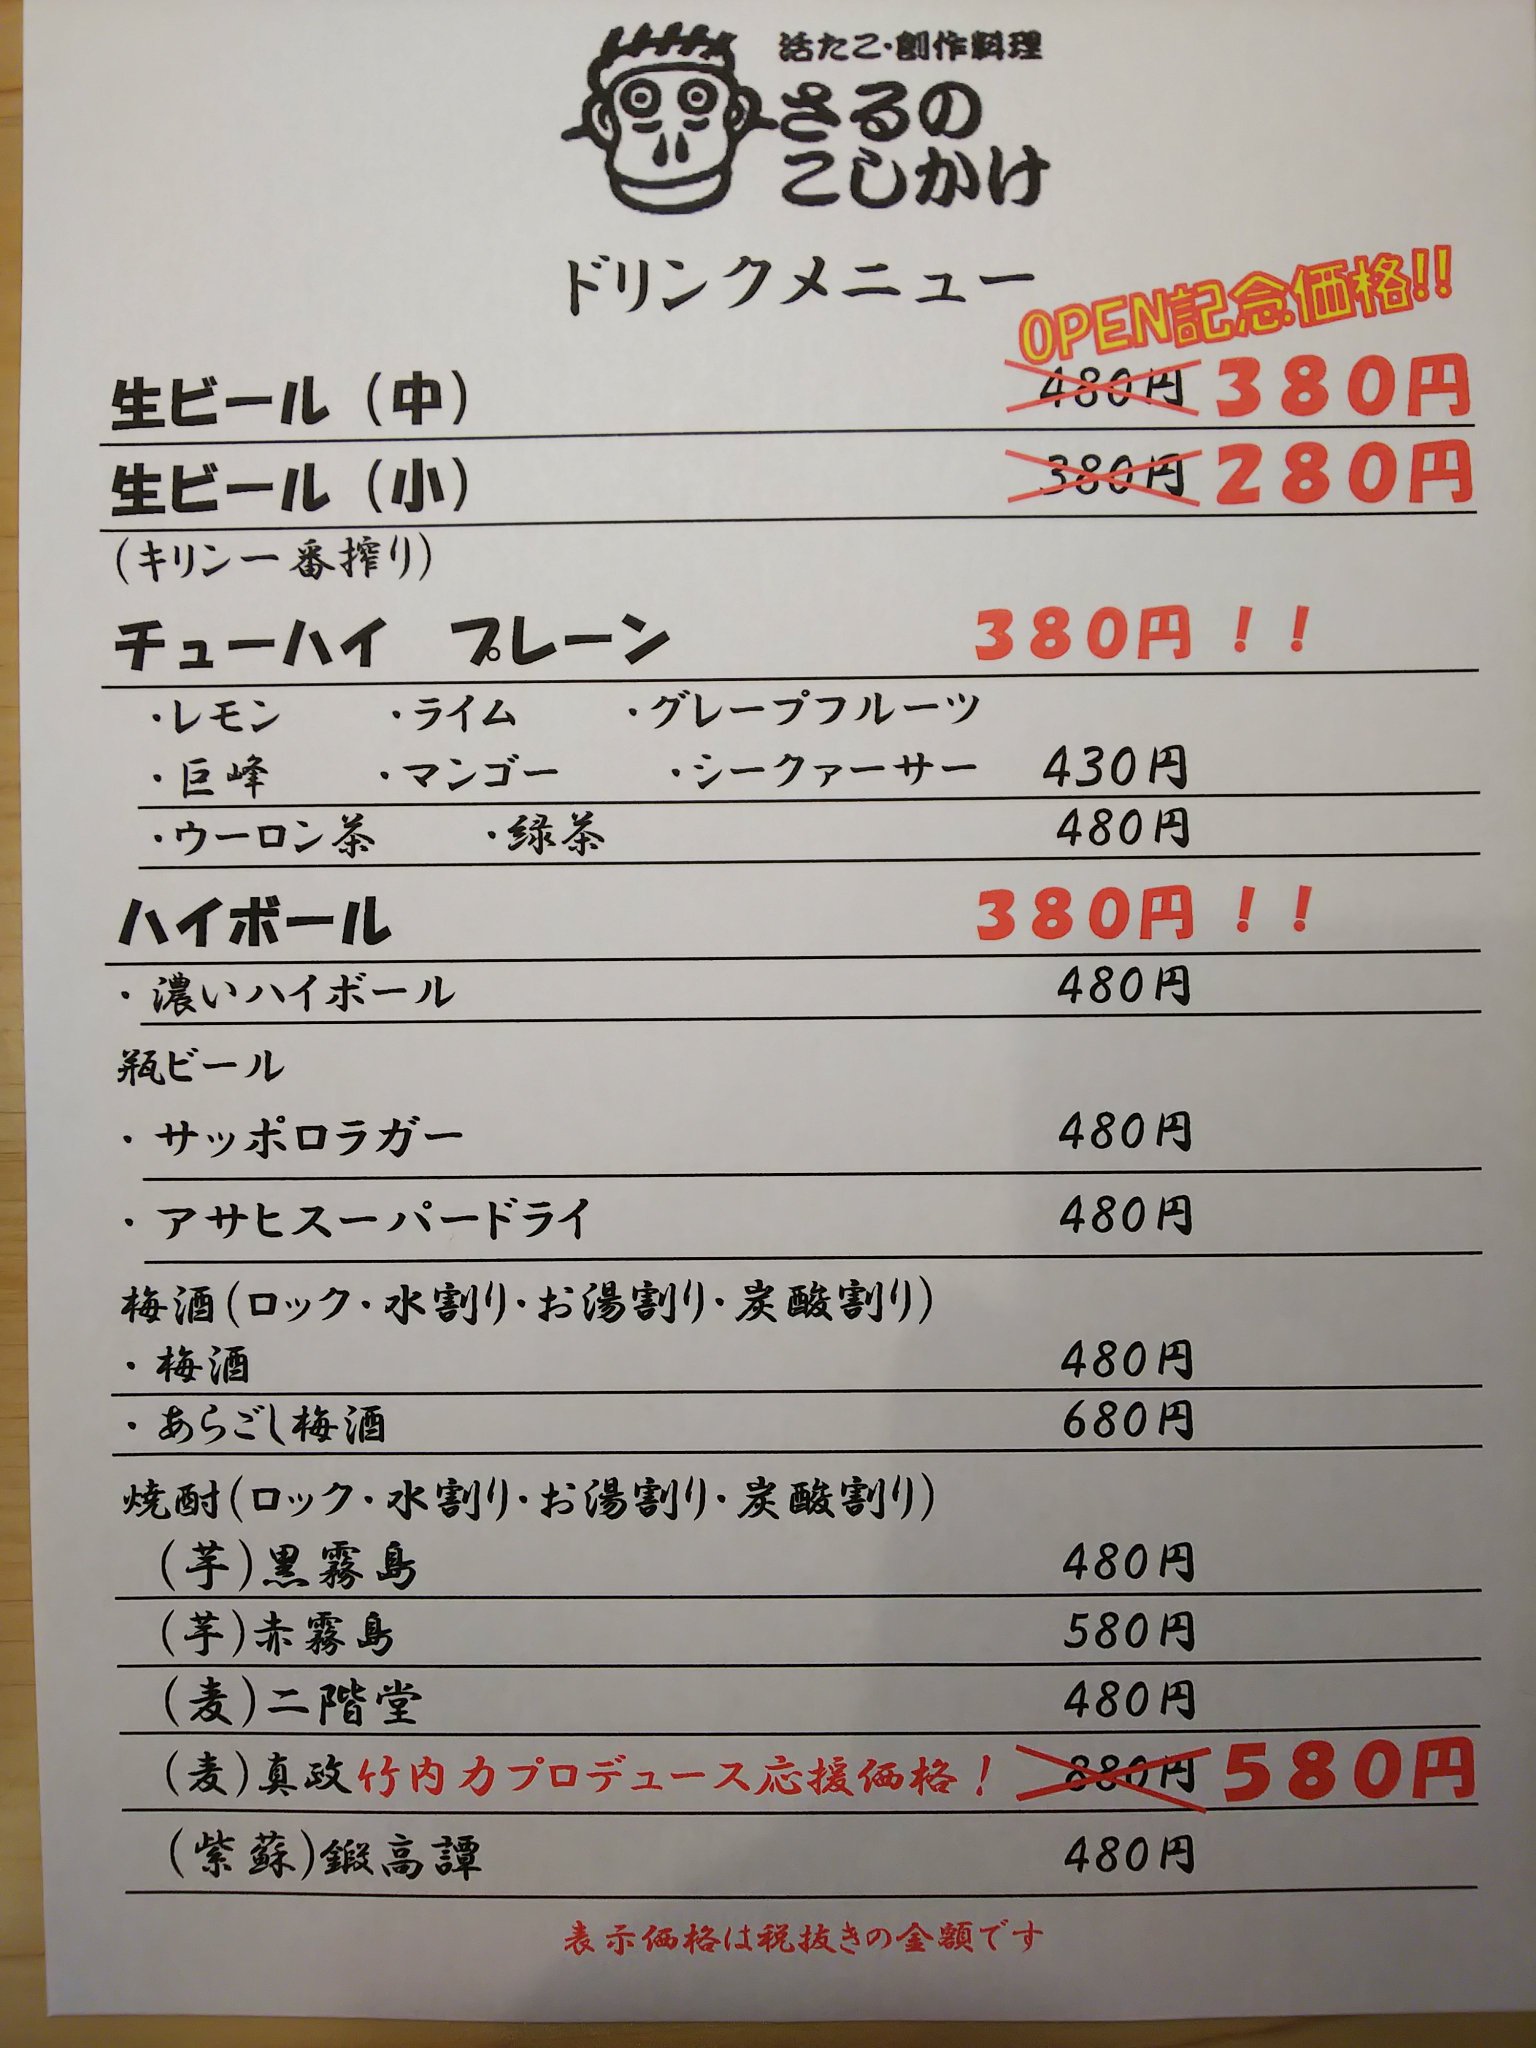 活たこ・創作料理
さるの
こしかけ
ドリンクメニュー
OPEN記念価格!!
生ビール（中） 480円 380円
生ビール（小） 380円 280円
(キリン一番搾り)
チューハイ　プレーン 380円！！
・レモン ・ライム ・グレープフルーツ
・巨峰 ・マンゴー ・シークァーサー 430円
・ウーロン茶 ・緑茶 480円
ハイボール 380円！！
・濃いハイボール 480円
瓶ビール
・サッポロラガー 480円
・アサヒスーパードライ 480円
梅酒(ロック・水割り・お湯割り・炭酸割り)
・梅酒 480円
・あらごし梅酒 680円
焼酎(ロック・水割り・お湯割り・炭酸割り)
(芋)黒霧島 480円
(芋)赤霧島 580円
(麦)二階堂 480円
(麦)真政竹内力プロデュース応援価格！ 880円 580円
(紫蘇)鍛高譚 480円
表示価格は税抜きの金額です